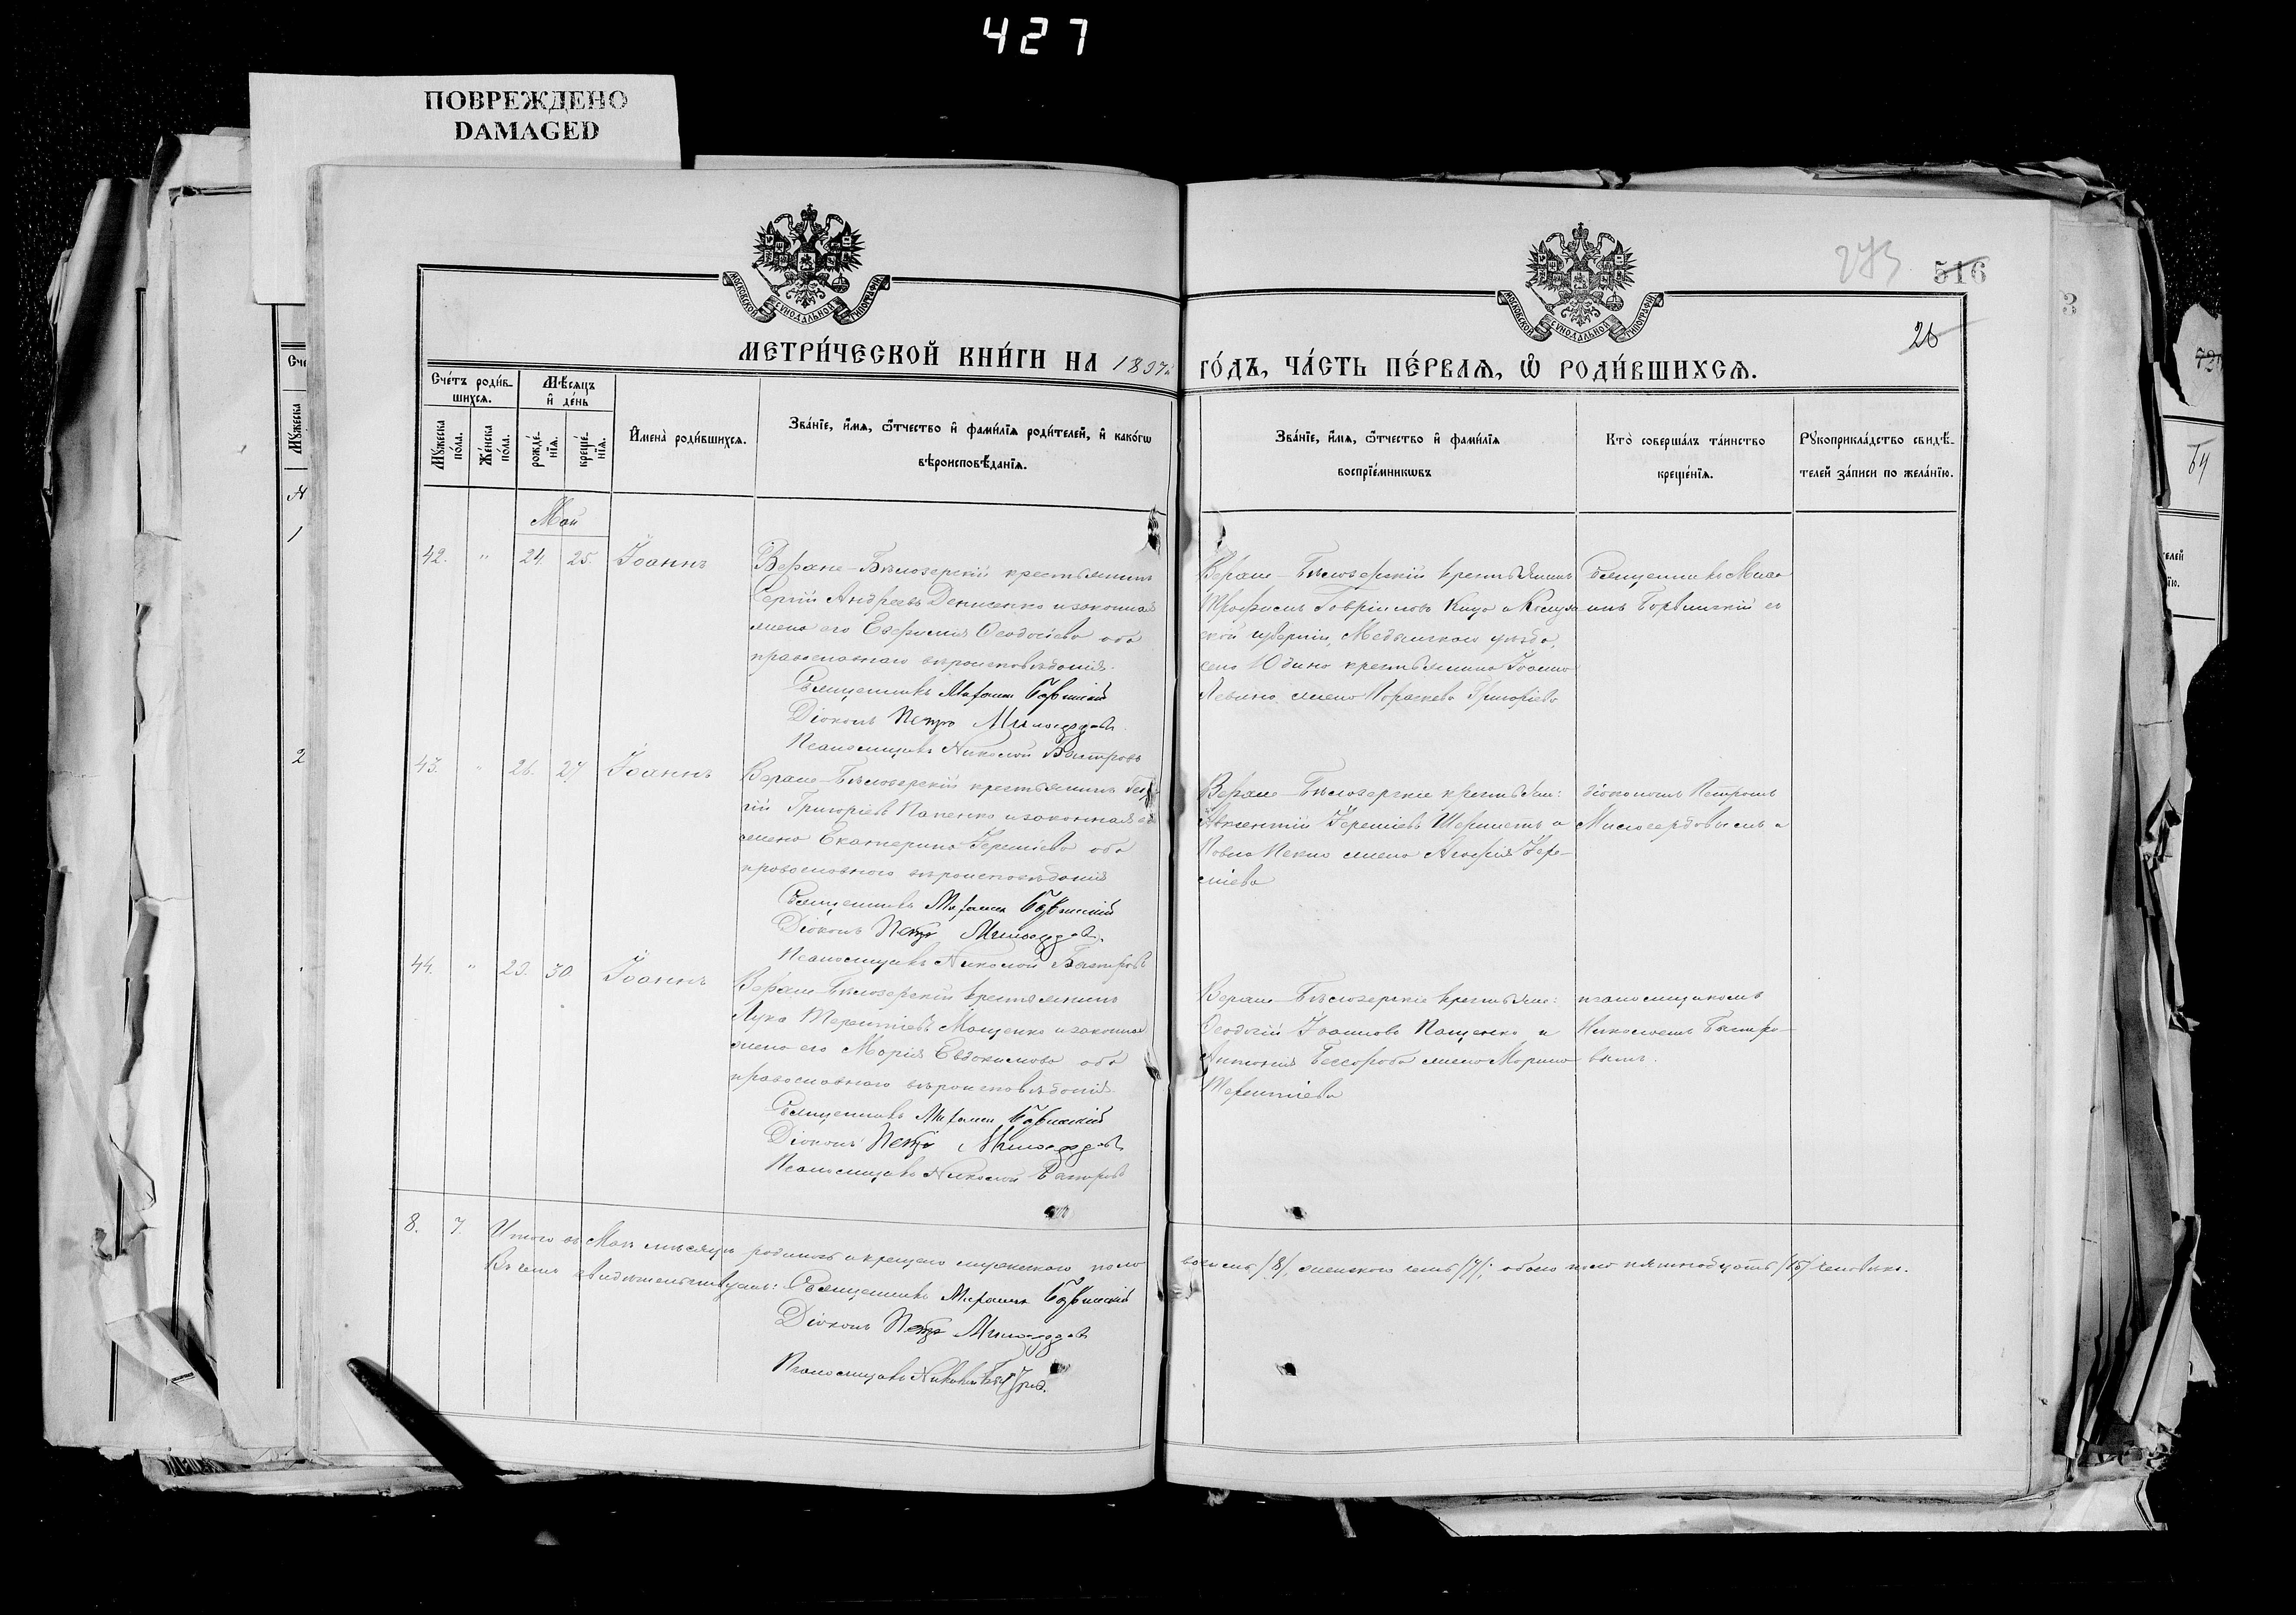 427
ПОВРЕЖДЕНО
DAMAGED
273
516
26
МОСКОВСКОЙ СѴНОДАЛЬНОЙ ТИПОГРАФІИ
МОСКОВСКОЙ СѴНОДАЛЬНОЙ ТИПОГРАФІИ
МЕТРИ́ЧЕСКОЙ КНИ́ГИ НА 1897й
ГО́ДЪ, ЧА́СТЬ ПЕ́РВАЯ, Ѡ РОДИ́ВШИХСЯ.
Сче́тъ роди́в-
шихся.
Мѣ́сяцъ
и де́нь
Му́жеска
по́ла.
Же́нска
по́ла.
рожде́-
нія.
креще́-
нія.
И́мена̀ роди́вшихся.
Зва́ніе, и́мя, ѻ́тчество и фами́лія роди́телей, и како́гѡ
вѣроисповѣ́данія.
Зва́ніе, и́мя, ѻ́тчество и фами́лія
воспріе́мниковъ
Кто̀ соверша́лъ та́инство
креще́нія.
Рукоприкла́дство свидѣ́-
телей за́писи по жела́нію.
Май
42. " 24. 25. Іоаннъ
Верхне-Бѣлозерскій крестьянинъ
Сергій Андреевъ Денисенко и законная
жена его Евфимія Ѳеодосіева оба
православнаго вѣроисповѣданія.
Священникъ
Діаконъ Петръ Милосердовъ
Псаломщикъ Николай Быстровъ
Верхне-Бѣлозерскій крестьянинъ
Трофимъ Гавріиловъ и Калуж
ской губерніи, Медынскаго уѣзда,
села Юдина крестьянина Іоанна
Левина жена Параскева Григоріева
Священникъ
43. " 26. 27 Іоаннъ
Верхне-Бѣлозерскій крестьянинъ Геор-
гій Григоріевъ Папенко и законная его
жена Екатерина Іереміева оба
православнаго вѣроисповѣданія
Священникъ
Діаконъ Петръ Милосердовъ
Псаломщикъ Николай Быстровъ
Верхне-Бѣлозерскіе крестьяне:
Авксентій Іереміевъ Шереметъ и
Павла жена Агафія Іере-
міева
діакономъ Петромъ
Милосердовымъ
44. " 29. 30. Іоаннъ
Верхне-Бѣлозерскій крестьянинъ
Лука Терентіевъ Мащенко и законная
жена его Марія Евдокимова оба
православнаго вѣроисповѣданія.
Священникъ
Діаконъ Петръ Милосердовъ
Псаломщикъ Николай Быстровъ
Верхне-Бѣлозерскіе крестьяне:
Ѳеодосій Іоанновъ Пащенко и
Антонія жена Марина
Терентіева
псаломщикомъ
Николаемъ Быстро-
вымъ.
8. 7. Итого въ Маѣ мѣсяцѣ родилось и крещено мужескаго пола восемь /8/, женскаго семь /7/; обоего пола пятнадцать /15/ человѣкъ.
Въ чемъ свидѣтельствуемъ: Священникъ
Діаконъ Петръ Милосердовъ
Псаломщикъ Николай Быстровъ.